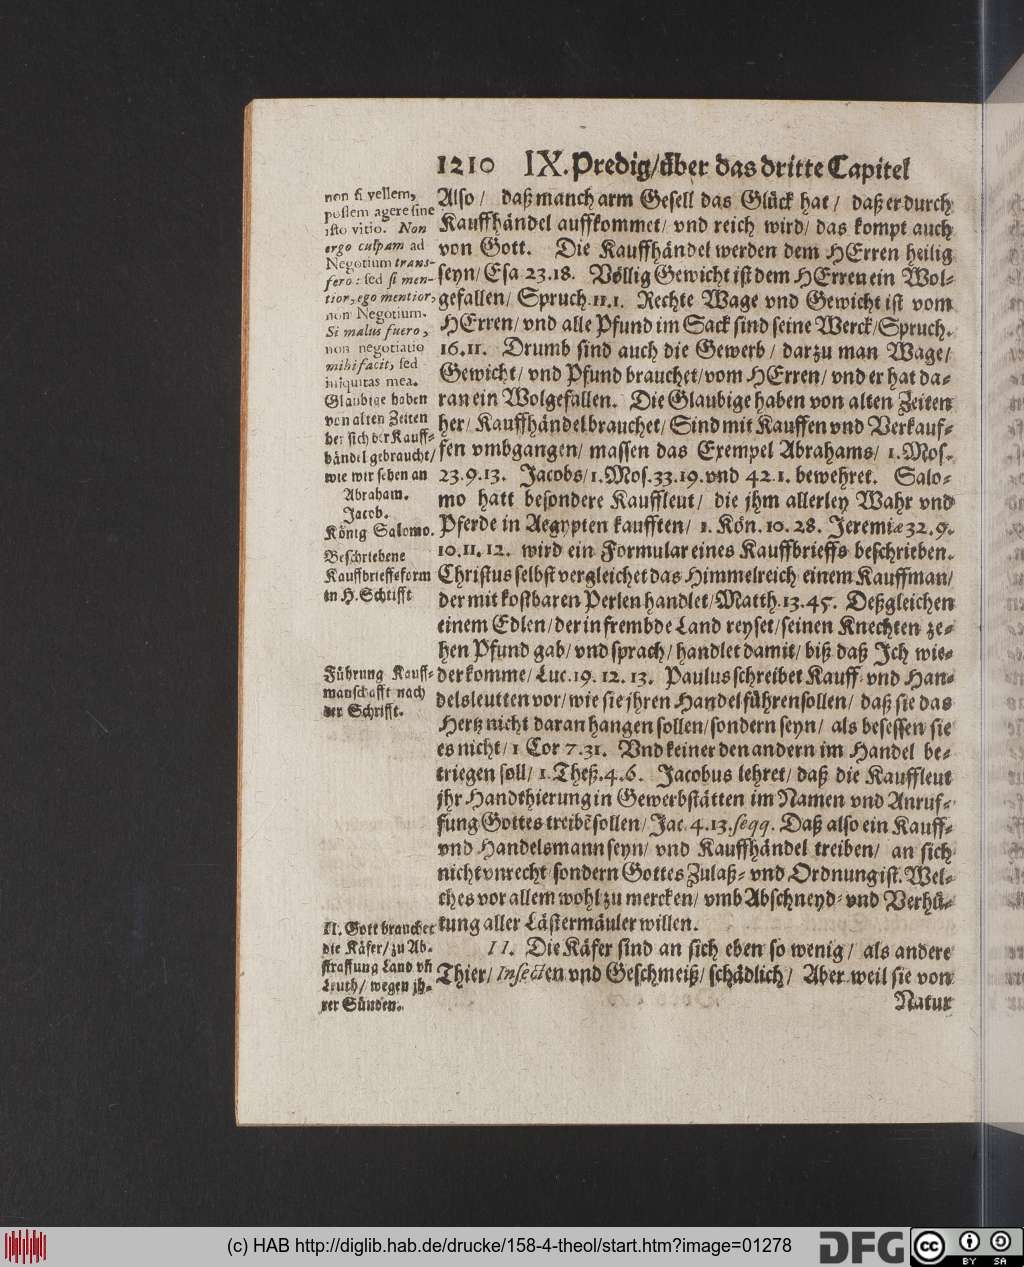 1210 IX. Predig/über das dritte Capitel
non si vellem,
possem agere sine
isto vitio. Non
ergo culpam ad
Negotium trans-
fero: sed si men-
tior, ego mentior,
non Negotium.
Si malus fuero,
non negotiatio
mihi facit, sed
iniquitas mea.
Glaubige haben
von alten Zeiten
her sich der Kauff-
händel gebraucht/
wie wir sehen an
Abraham.
Jacob.
König Salomo.
Beschriebene
Kauffbrieffsform
in H. Schrifft
Führung Kauff-
manschafft nach
der Schrifft.
II. Gott brauchet
die Käfer/zu Ab-
straffung Land vn̄
Leuth/ wegen jh-
rer Sünden.
Also/ daß manch arm Gesell das Glück hat/ daß er durch
Kauffhändel auffkommet/ vnd reich wird/ das kompt auch
von Gott. Die Kauffhändel werden dem HErren heilig
seyn/ Esa 23.18. Völlig Gewicht ist dem HErren ein Wol-
gefallen/ Spruch. 11.1. Rechte Wage vnd Gewicht ist vom
HErren/ vnd alle Pfund im Sack sind seine Werck/Spruch.
16.11. Drumb sind auch die Gewerb/ darzu man Wage/
Gewicht/ vnd Pfund brauchet/vom HErren/ vnd er hat da-
ran ein Wolgefallen. Die Glaubige haben von alten Zeiten
her/ Kauffhändel brauchet/ Sind mit Kauffen vnd Verkauf-
fen vmbgangen/ massen das Exempel Abrahams/ 1. Mos.
23.9.13. Jacobs/1.Mos.33.19. vnd 42.1. bewehret. Salo-
mo hatt besondere Kauffleut/ die jhm allerley Wahr vnd
Pferde in Aegypten kaufften/ 1. Kön. 10. 28. Jeremiæ 32.9.
10.11.12. wird ein Formular eines Kauffbrieffs beschrieben.
Christus selbst vergleichet das Himmelreich einem Kauffman/
der mit kostbaren Perlen handlet/Matth.13.45. Deßgleichen
einem Edlen/ der in frembde Land reyset/seinen Knechten ze-
hen Pfund gab/ vnd sprach/ handlet damit/ biß daß Ich wie-
der komme/ Luc.19. 12. 13. Paulus schreibet Kauff- vnd Han-
delsleutten vor/ wie sie jhren Handel führen sollen/ daß sie das
Hertz nicht daran hangen sollen/sondern seyn/ als besessen sie
es nicht/ 1 Cor 7.31. Vnd keiner den andern im Handel be-
triegen soll/ 1. Theß.4.6. Jacobus lehret/ daß die Kauffleut
jhr Handthierung in Gewerbstätten im Namen vnd Anruf-
fung Gottes treibē sollen/ Jac. 4.13. seqq. Daß also ein Kauff-
vnd Handelsmann seyn/ vnd Kauffhändel treiben/ an sich
nicht vnrecht sondern Gottes Zulaß- vnd Ordnung ist. Wel-
ches vor allem wohl zu mercken/ vmb Abschneyd- vnd Verhü-
tung aller Lästermäuler willen.
II. Die Käfer sind an sich eben so wenig/ als andere
Thier/ Insecten vnd Geschmeiß/ schädlich/ Aber weil sie von
Natur
(c) HAB http://diglib.hab.de/drucke/158-4-theol/start.htm?image=01278
DFG
cc
BY SA